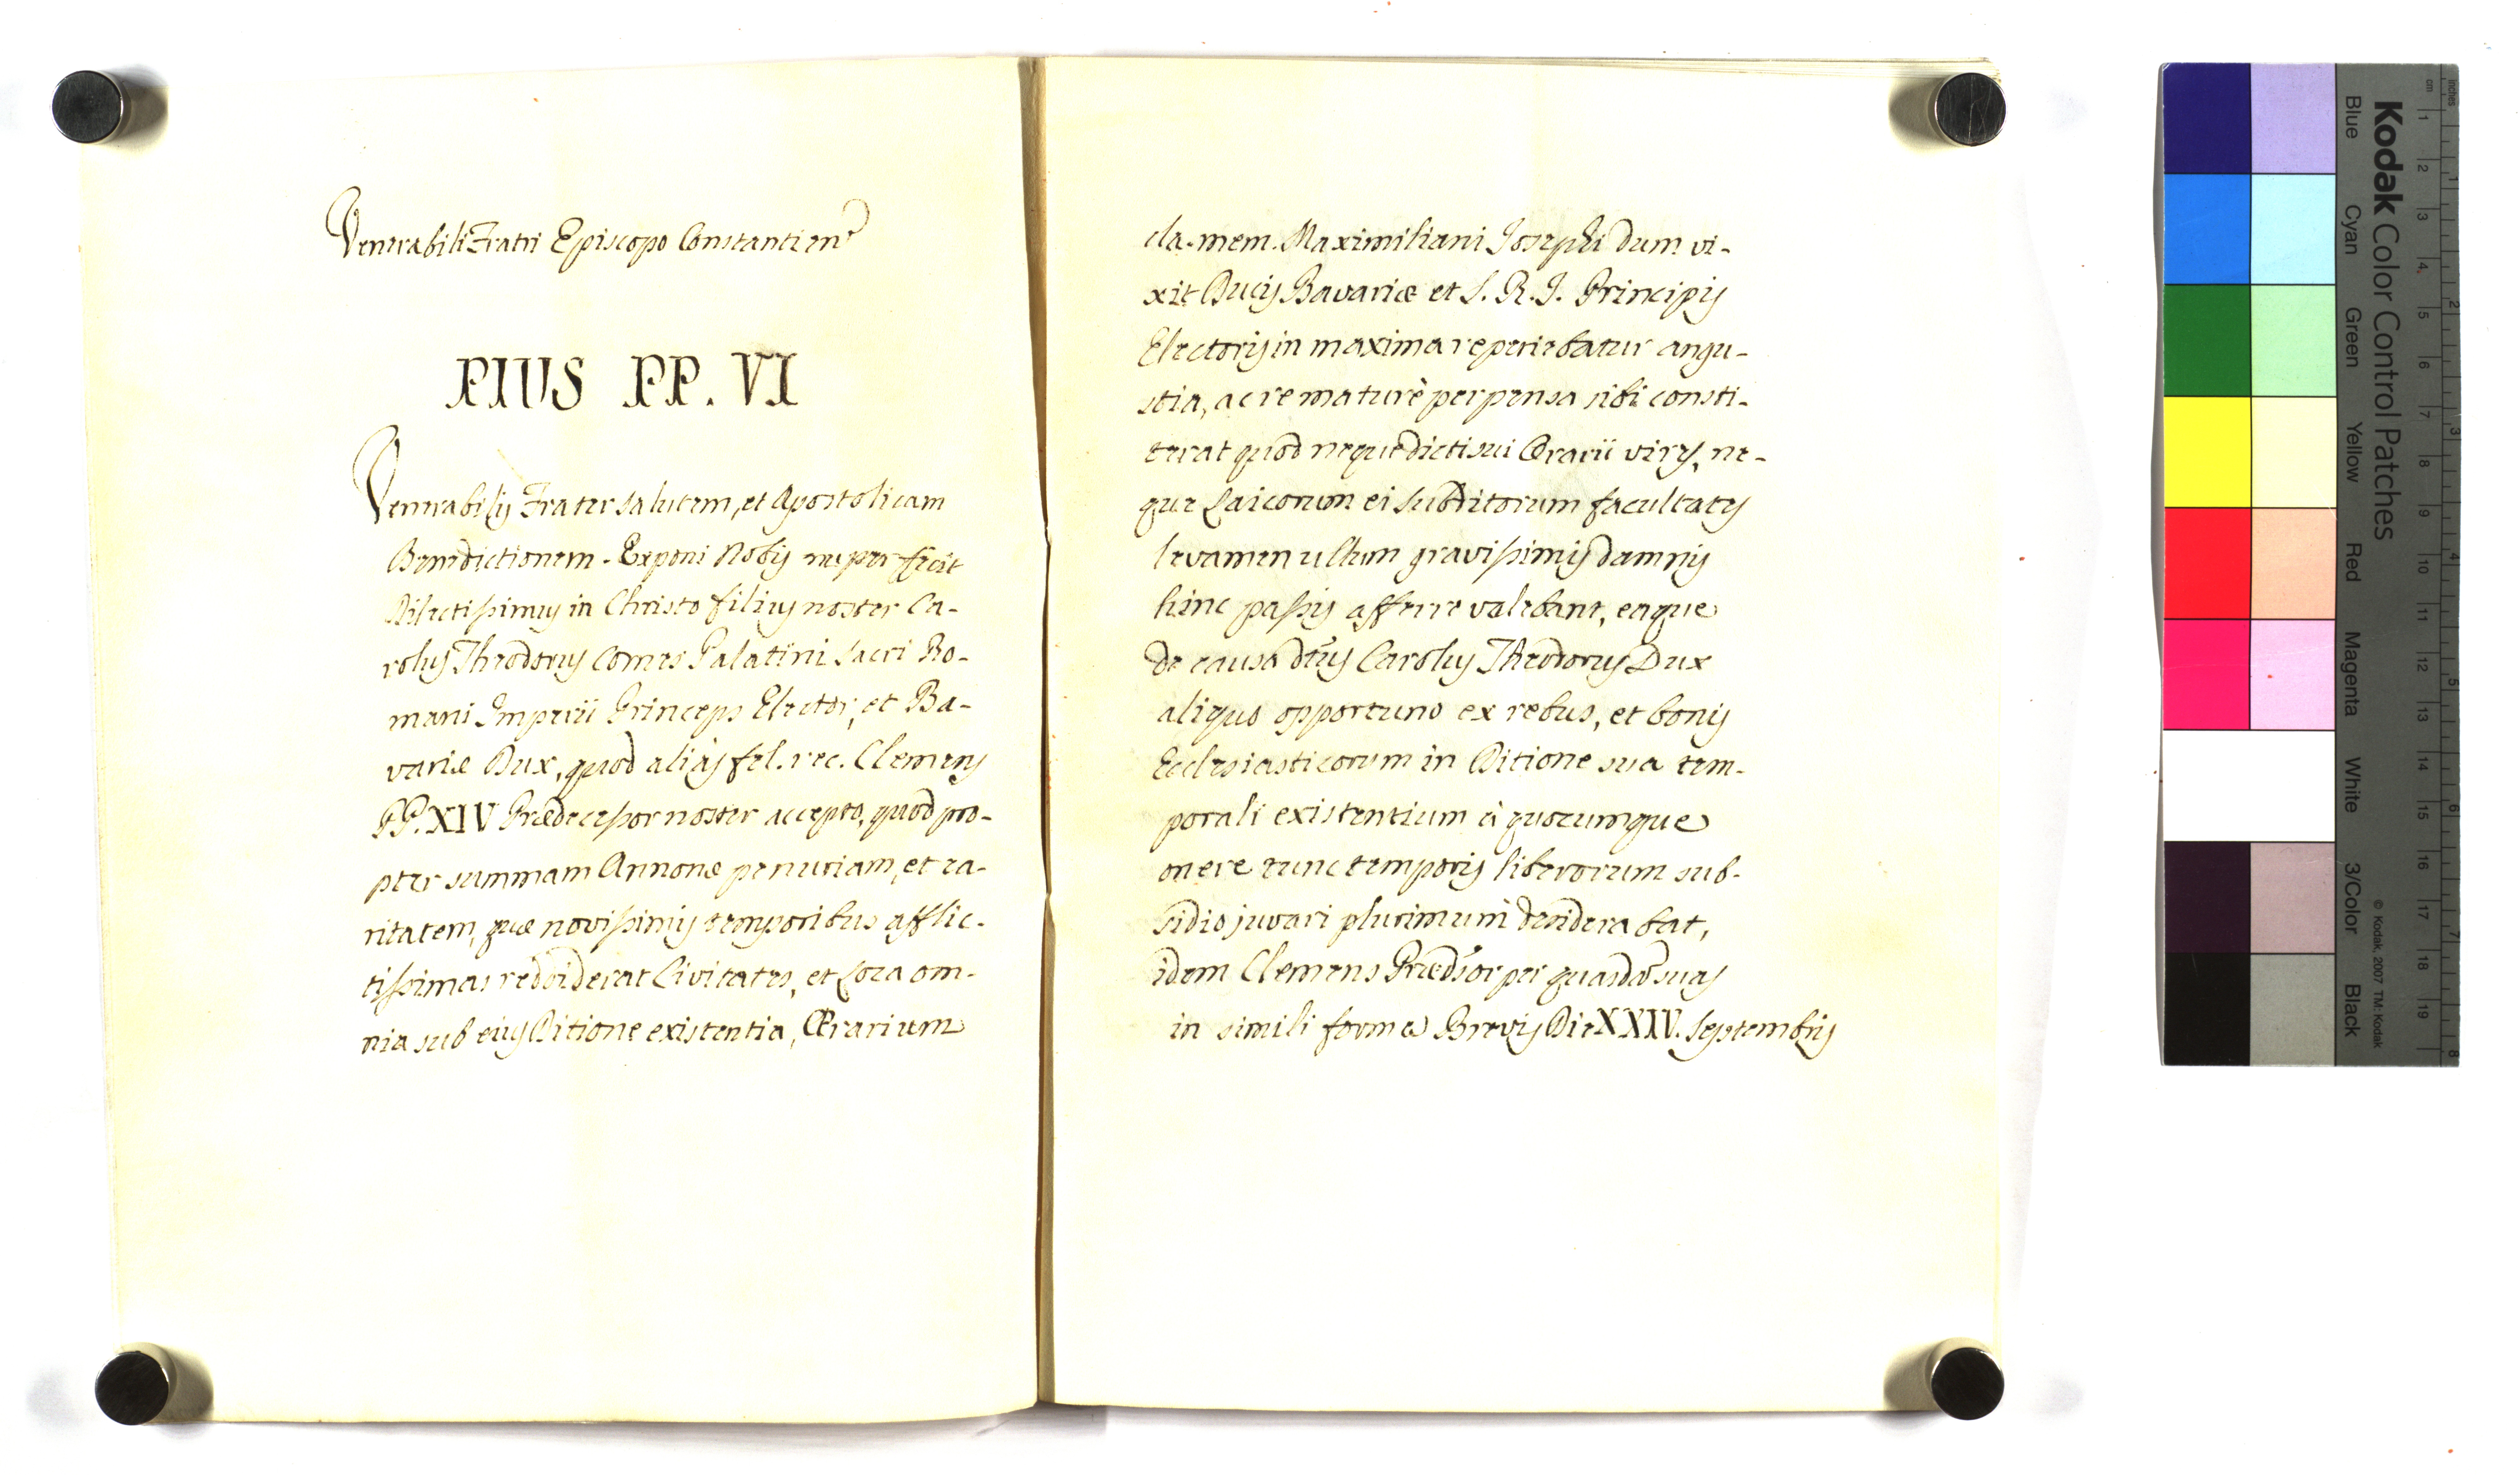 Venerabili Fratri Episcopo Constantien
PIUS PP. VI
Venerabilis Frater salutem, et Apostolicam
Benedictionem. Exponi Nobis nuper fecit
Dilectissimus in Christo filius noster Ca-
rolus Theodorus Comes Palatini Sacri Ro-
mani Imperii Princeps Elector, et Ba-
variæ Dux, quod aliàs fel. rec. Clemens
PP. XIV Prædecessor noster accepto, quod pro-
pter summam Annonæ penuriam, et ra-
ritatem, quæ novissimis temporibus afflic-
tissimas reddiderat Civitates, et Loca om-
nia sub ejus Ditione existentia, Ærarium
cla. mem. Maximiliani Josephi dum vi-
xit Ducis Bavariæ et S. R. I. Principis
Electoris in maxima reperiebatur angu-
stia, ac re maturè perpensa sibi consti-
terat quod neque dicti sui Ærarii vires, ne-
que Laicorum ei Subditorum facultates
levamen ullum gravissimis damnis
hinc passis afferre valebant, eaque
de causa dtus Carolus Theodorus Dux
aliquo opportuno ex rebus, et bonis
Ecclesiasticorum in Ditione sua tem-
porali existentium à quocumque
onere tunc temporis liberorum sub-
sidio juvari plurimum desiderabat,
idem Clemens Prædsor per quasdã suas
in simili forma Brevis Die XXIV. Septembris
Kodak Color Control Patches
Blue Cyan Green Yellow Red Magenta White 3/Color Black
© Kodak, 2007 TM: Kodak
cm 1 2 3 4 5 6 7 8 9 10 11 12 13 14 15 16 17 18 19
inches 1 2 3 4 5 6 7 8